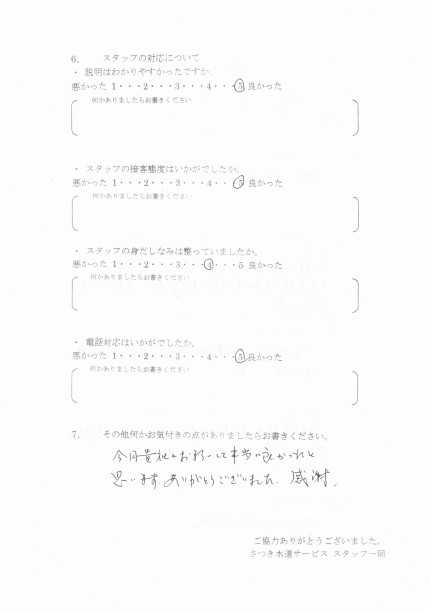 6、 スタッフの対応について
・ 説明はわかりやすかったですか。
悪かった 1・・・2・・・3・・・4・・・5 良かった
何かありましたらお書きください
・ スタッフの接客態度はいかがでしたか。
悪かった 1・・・2・・・3・・・4・・・5 良かった
何かありましたらお書きください
・ スタッフの身だしなみは整っていましたか。
悪かった 1・・・2・・・3・・・4・・・5 良かった
何かありましたらお書きください
・ 電話対応はいかがでしたか。
悪かった 1・・・2・・・3・・・4・・・5 良かった
何かありましたらお書きください
7、 その他何かお気付きの点がありましたらお書きください。
今回貴社にお願いして本当に良かったと
思います。ありがとうございました。感謝。
ご協力ありがとうございました。
さつき水道サービス スタッフ一同